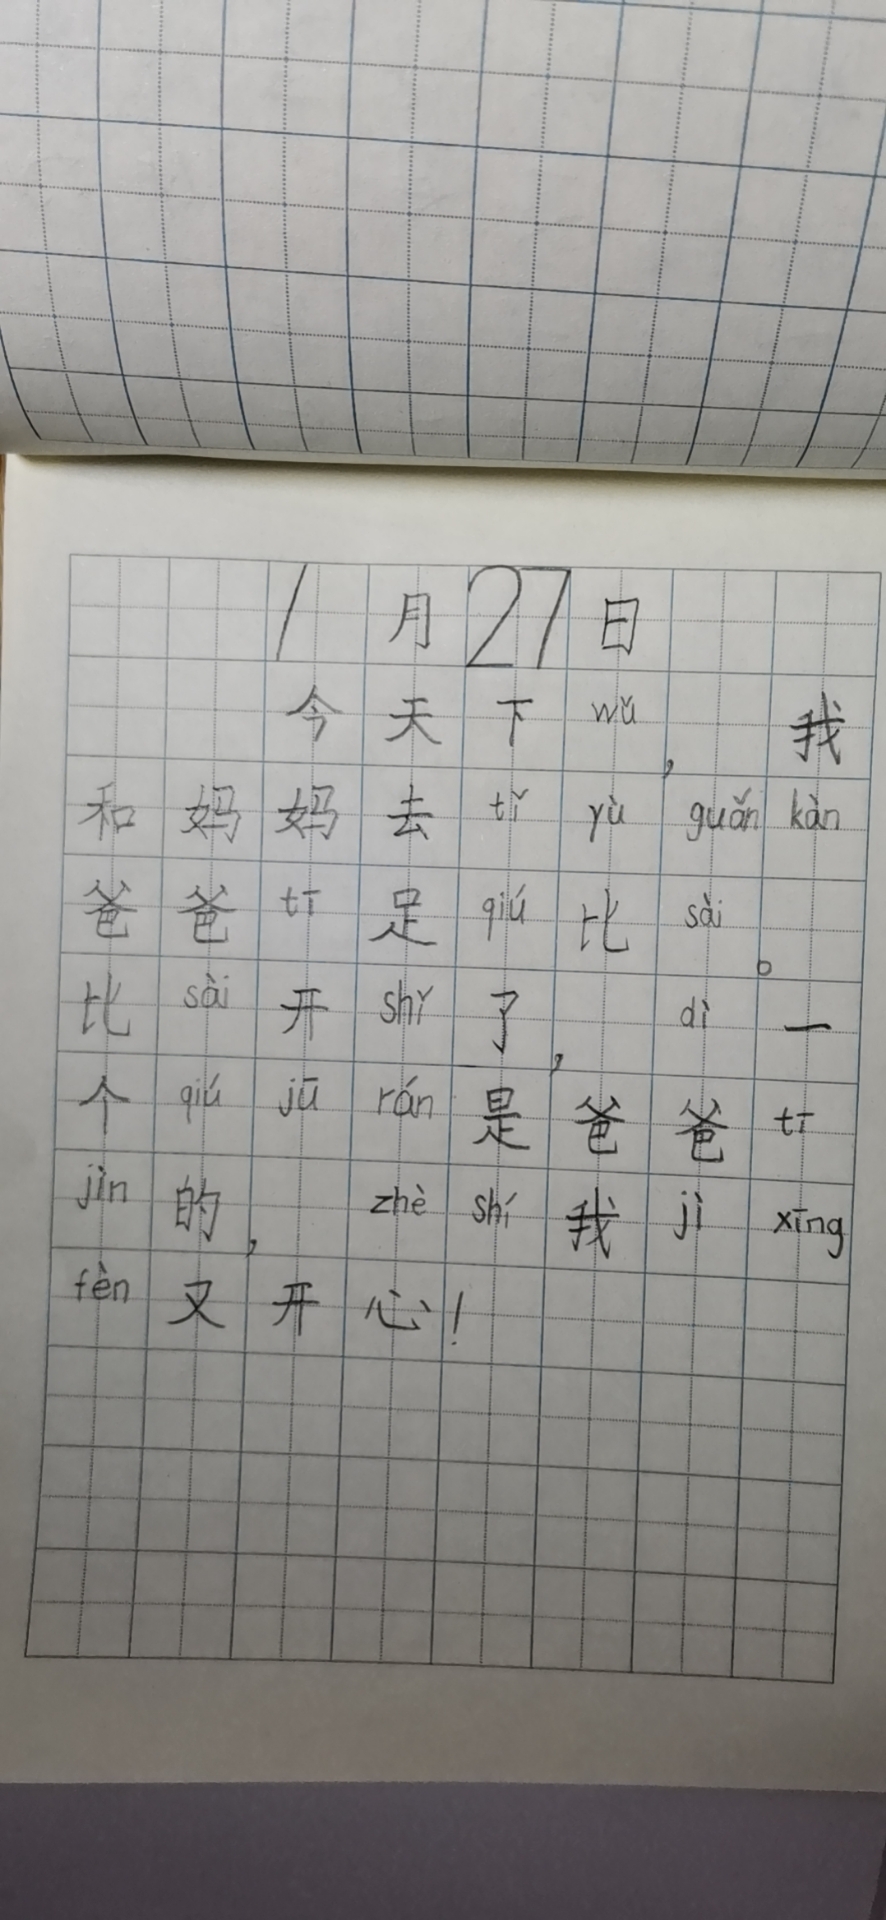 1月27日
今天下wǔ，我
和妈妈去tǐ yù guǎn kàn
爸爸tī足qiú比sài。
比sài开shǐ了，dì一
个qiú jū rán是爸爸tī
jìn的，zhè shí我jì xīng
fèn又开心！